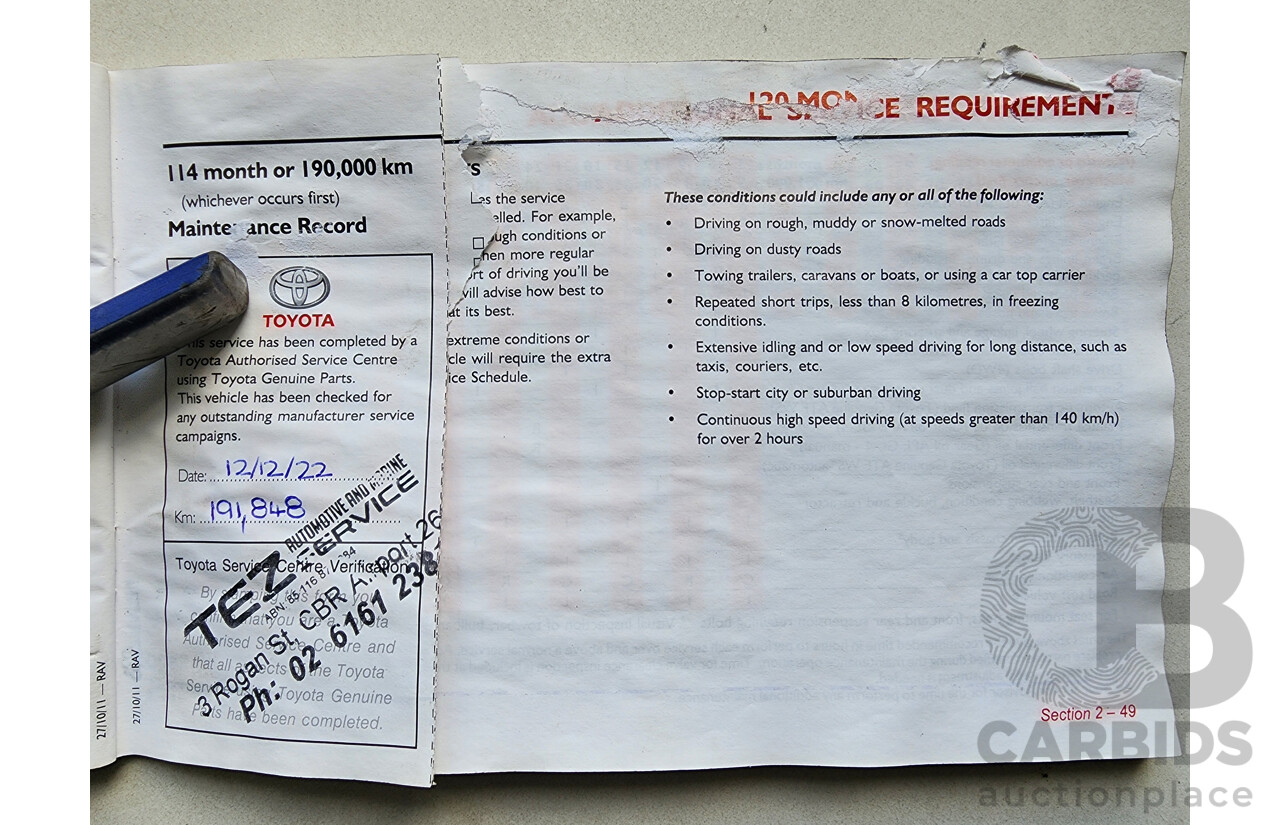 114 month or 190,000 km
(whichever occurs first)
Maintenance Record
TOYOTA
This service has been completed by a
Toyota Authorised Service Centre
using Toyota Genuine Parts.
This vehicle has been checked for
any outstanding manufacturer service
campaigns.
Date: 12/12/22
Km: 191,848
Toyota Service Centre Verification
By stamping this form you
that you are a Toyota
Authorised Service Centre and
that all aspects of the Toyota
Service using Toyota Genuine
Parts have been completed.
TEZ AUTOMOTIVE AND MARINE
SERVICE
3 Rogan St, CBR Airport 26
Ph: 02 6161 238
27/10/11 — RAV
27/10/11 — RAV
REQUIREMENT
the service
elled. For example,
ugh conditions or
hen more regular
rt of driving you'll be
will advise how best to
at its best.
extreme conditions or
cle will require the extra
ice Schedule.
These conditions could include any or all of the following:
• Driving on rough, muddy or snow-melted roads
• Driving on dusty roads
• Towing trailers, caravans or boats, or using a car top carrier
• Repeated short trips, less than 8 kilometres, in freezing
conditions.
• Extensive idling and or low speed driving for long distance, such as
taxis, couriers, etc.
• Stop-start city or suburban driving
• Continuous high speed driving (at speeds greater than 140 km/h)
for over 2 hours
Section 2 – 49
CARBIDS
auctionplace